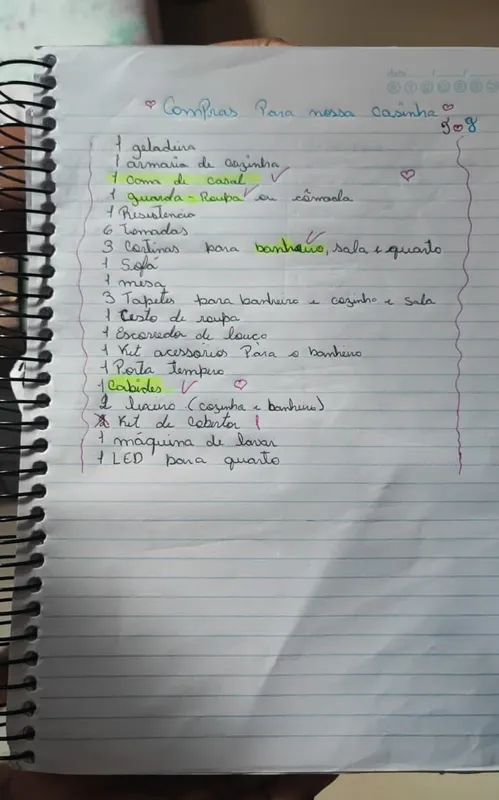 data / /
D S T Q Q S S
Compras Para nossa casinha
J+J
1 geladeira
1 armario de cozinha
1 cama de casal
1 guarda-Roupa ou cômoda
1 Resistencia
6 Tomadas
3 Cortinas para banheiro, sala e quarto
1 Sofá
1 mesa
3 Tapetes para banheiro e cozinha e sala
1 Cesto de roupa
1 Escorredor de louço
1 Kit acessorios Para o banheiro
1 Porta tempero
1 Cabides
2 lixeiro (cozinha e banheiro)
Kit de cobertor 1
1 máquina de lavar
1 LED para quarto